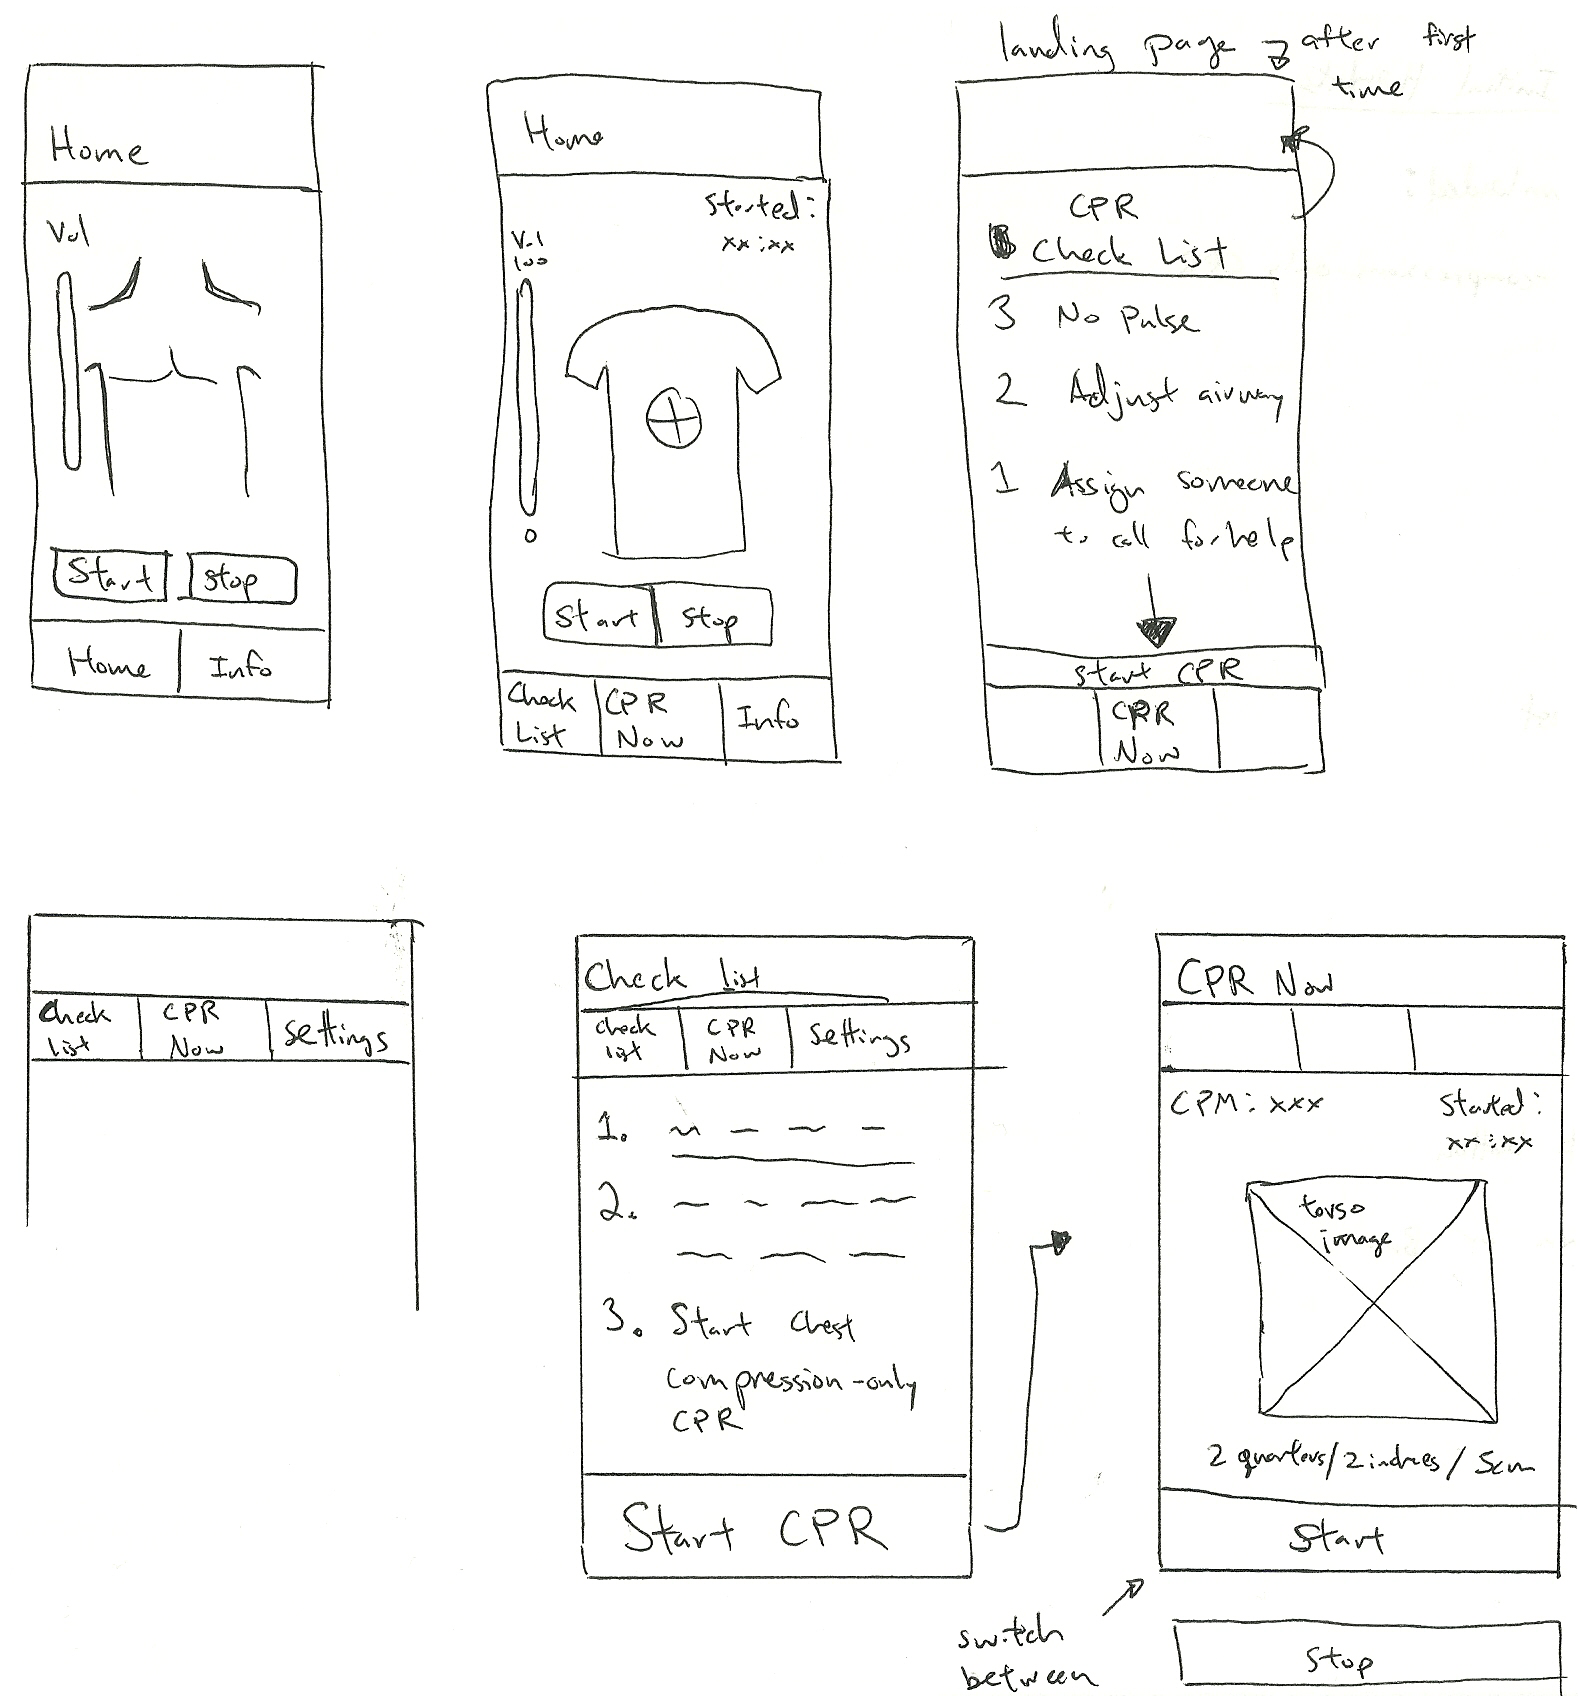 landing page after first
time
Home
Vol
Start stop
Home Info
Home
Started:
xx:xx
Vol
100
0
Start Stop
Check
List
CPR
Now
Info
CPR
Check List
3 No Pulse
2 Adjust airway
1 Assign someone
to call for help
start CPR
CPR
Now
Check
list
CPR
Now
Settings
Check list
Check
list
CPR
Now
Settings
1.
2.
3. Start Chest
compression-only
CPR
Start CPR
CPR Now
CPM: xxx
Started:
xx:xx
torso
image
2 quarters/2 inches/5cm
Start
switch
between
Stop